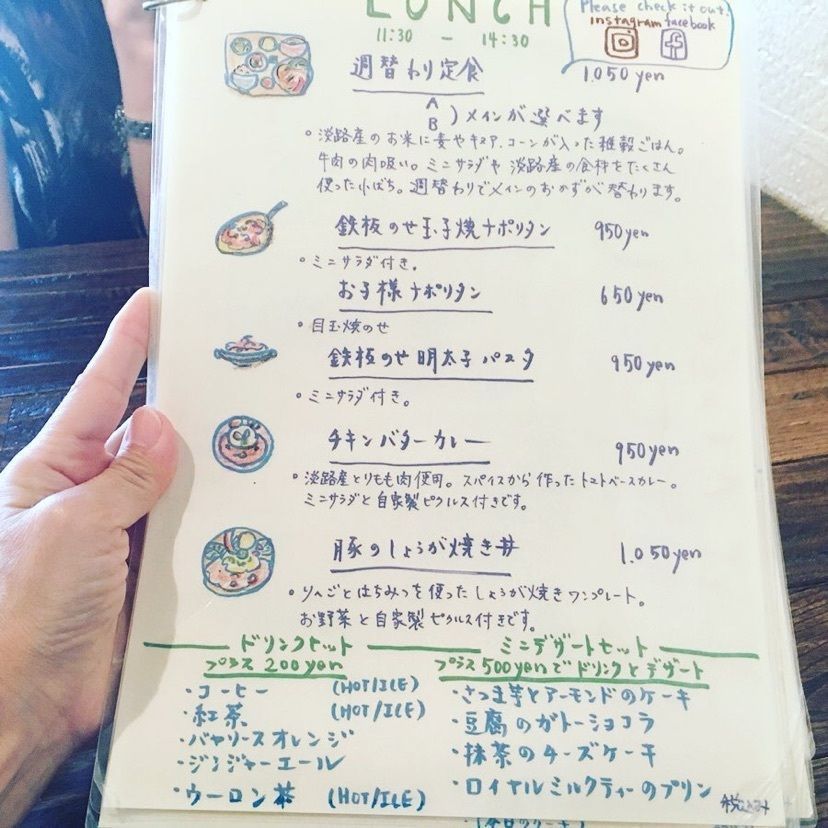 LUNCH
11:30 - 14:30
Please check it out.
instagram facebook
週替わり定食 1.050yen
A
B ) メインが選べます
◦ 淡路産のお米に麦やキヌア、コーンが入った雑穀ごはん。
牛肉の肉吸い。ミニサラダや 淡路産の食材をたくさん
使った小ばち。週替わりでメインのおかずが替わります。
鉄板のせ玉子焼ナポリタン 950yen
◦ ミニサラダ付き。
お子様ナポリタン 650yen
◦ 目玉焼のせ
鉄板のせ明太子パスタ 950yen
◦ ミニサラダ付き。
チキンバターカレー 950yen
◦ 淡路産とりもも肉使用。スパイスから作ったトマトベースカレー。
ミニサラダと自家製ピクルス付きです。
豚のしょうが焼き丼 1.050yen
◦ りんごとはちみつを使ったしょうが焼きワンプレート。
お野菜と自家製ピクルス付きです。
ドリンクセット
プラス 200yen
・コーヒー (HOT/ICE)
・紅茶 (HOT/ICE)
・バヤリースオレンジ
・ジンジャーエール
・ウーロン茶 (HOT/ICE)
ミニデザートセット
プラス500yenでドリンクとデザート
・さつま芋とアーモンドのケーキ
・豆腐のガトーショコラ
・抹茶のチーズケーキ
・ロイヤルミルクティーのプリン
税込み